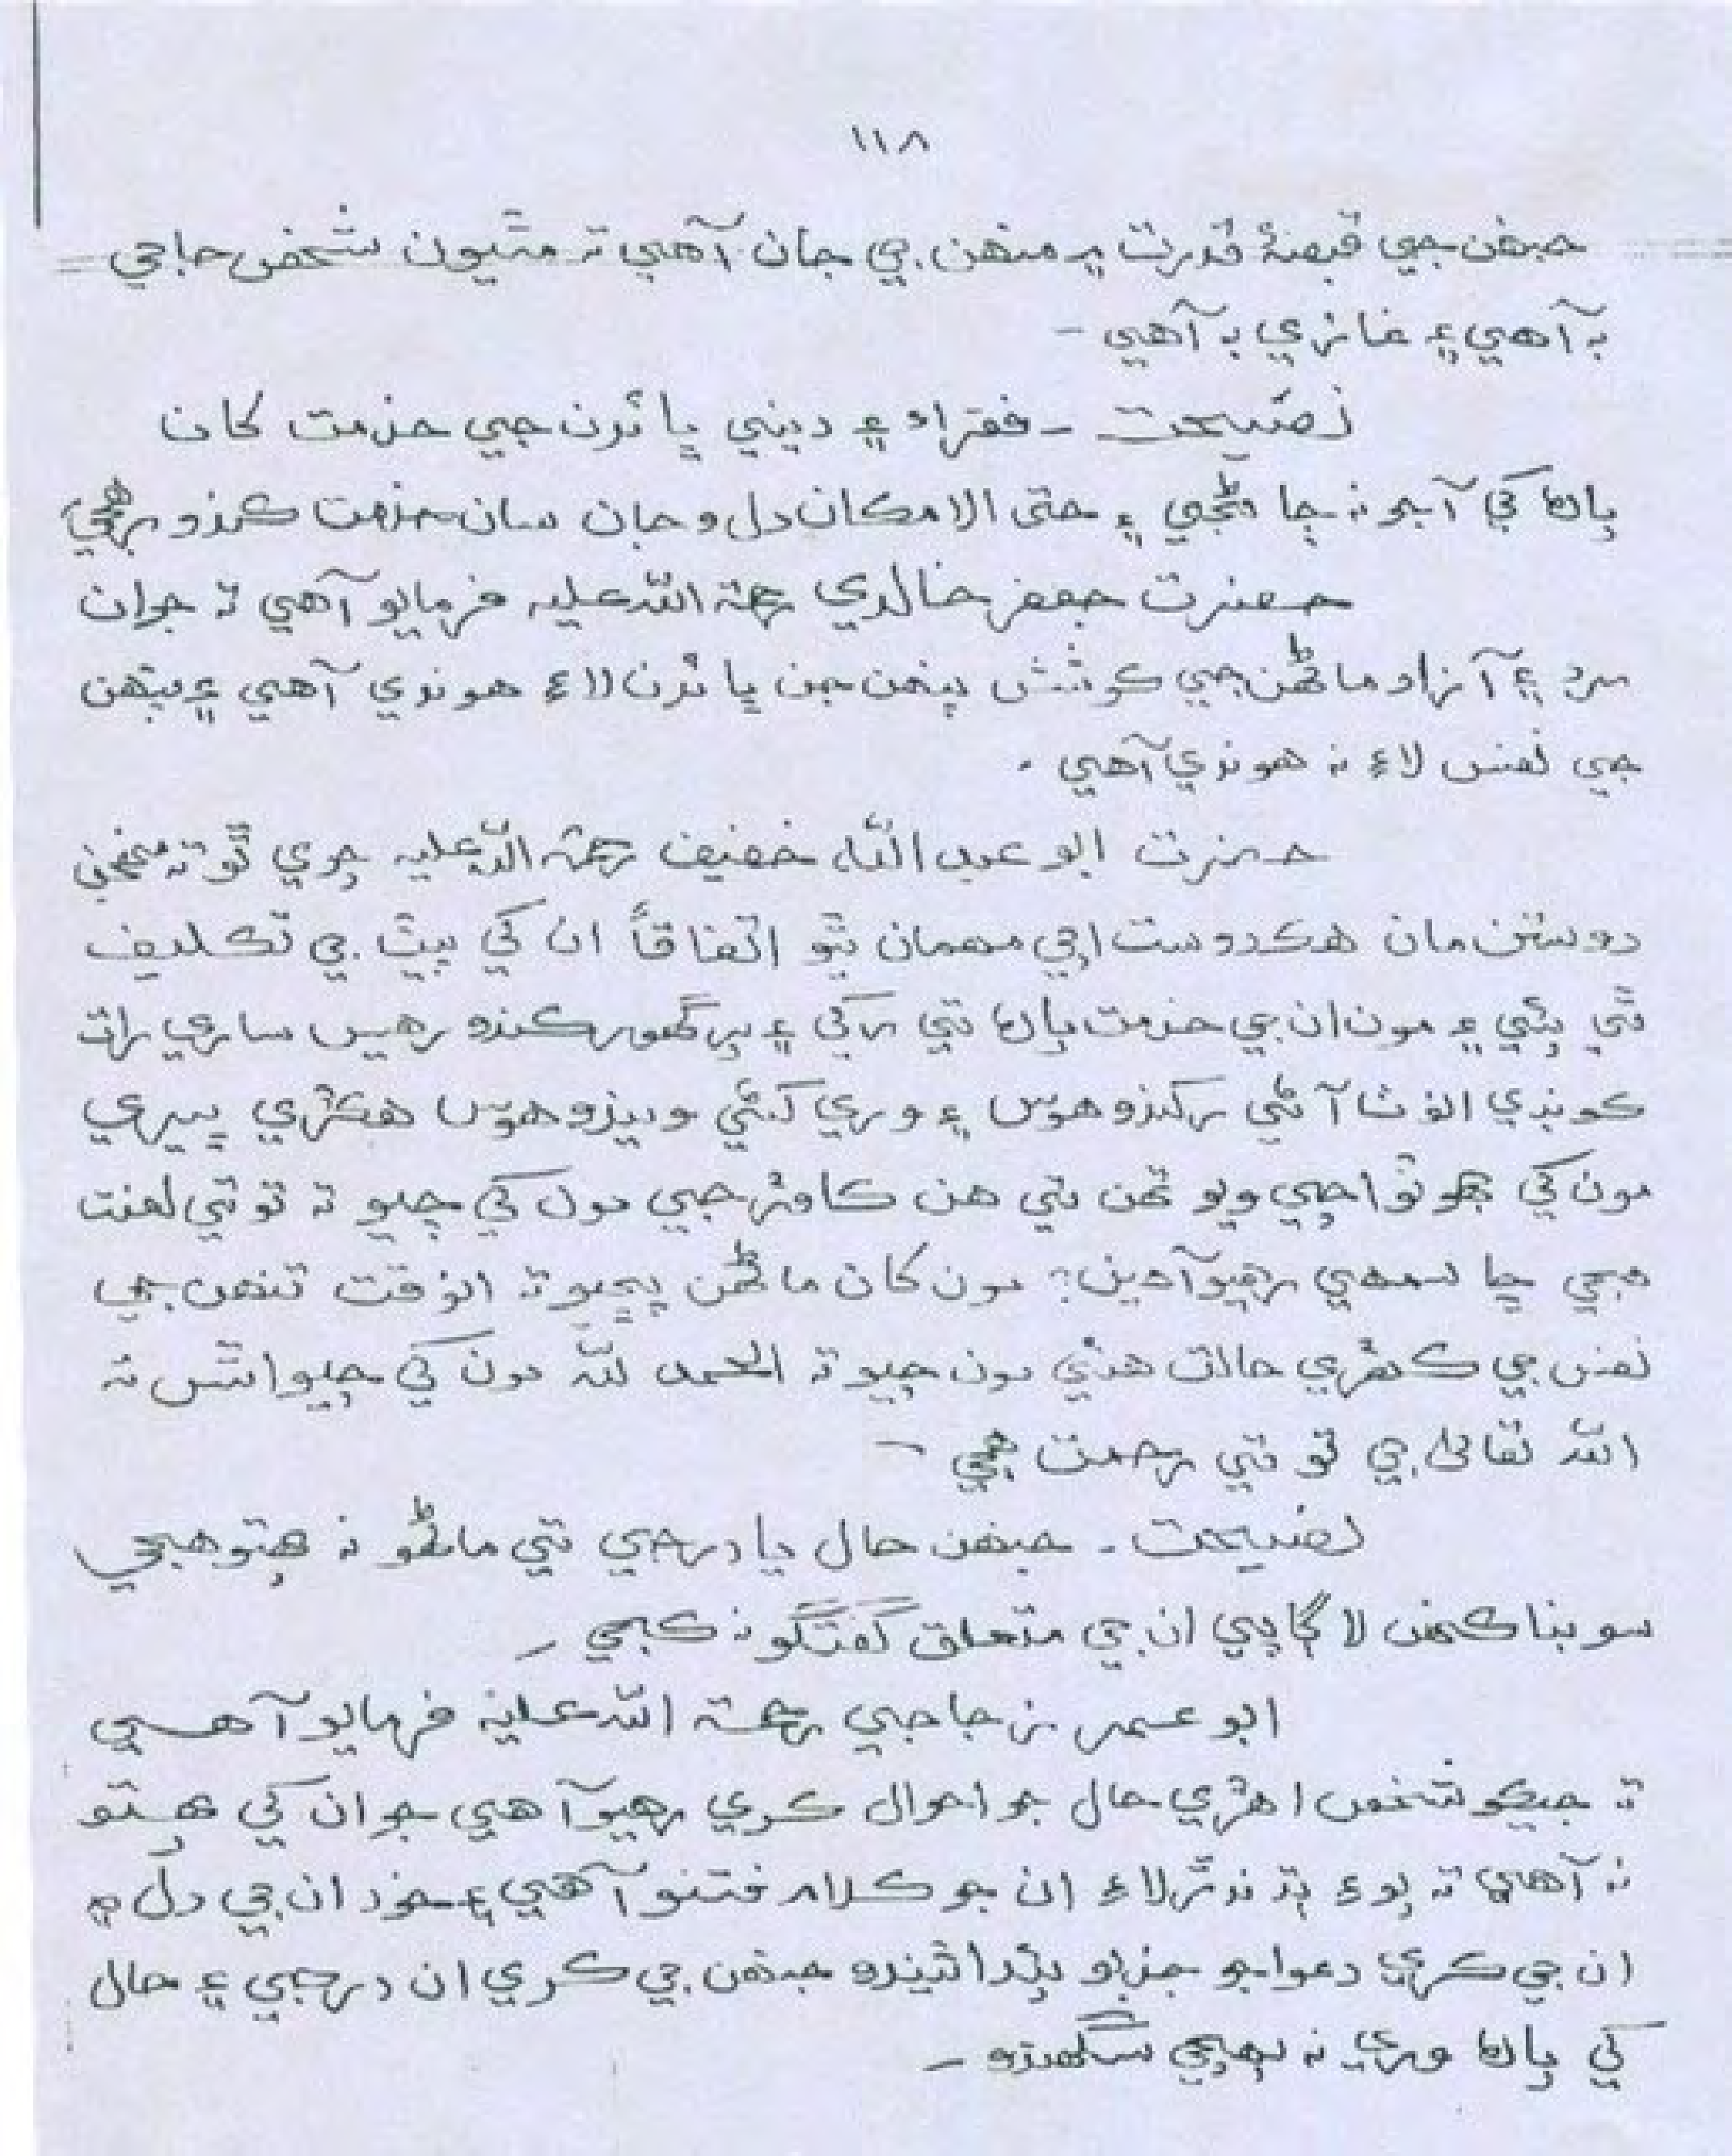 ١١٨
جنهن جي قبضهٔ قدرت ۾ منهن جي جان آهي ته مٿيون شخص حاجي
به آهي ۽ غازي به آهي -
نصيحت - فقراء ۽ ديني ڀائرن جي خدمت کان
پاڻ کي آجو نه ڄاڻجي ۽ حتى الامكان دل و جان سان خدمت ڪندو رهجي
حضرت جعفر خالدي رحمة الله عليه فرمايو آهي ته جوان
مرد ۽ آزاد ماڻهن جي ڪوشش پنهنجن ڀائرن لاءِ هوندي آهي ۽ پنهن
جي نفس لاءِ نه هوندي آهي .
حضرت ابو عبد الله خفيف رحمة الله عليه چوي ٿو ته منهنجن
دوستن مان هڪ دوست اچي مهمان ٿيو اتفاقاً ان کي پيٽ جي تڪليف
ٿي پئي ۽ مون ان جي خدمت پاڻ تي رکي ۽ پرگهور ڪندو رهيس ساري رات
ڪونڊي انوٽ آڻي رکندو هوس ۽ وري کڻي ويندو هوس هڪڙي ڀيري
مون کي جهوٽو اچي ويو تنهن تي هن ڪاوڙجي مون کي چيو ته تو تي لعنت
هجي ڇا سمهي رهيو آهين؟ مون کان ماڻهن پڇيو ته انوقت تنهن جي
نفس جي ڪهڙي حالت هئي مون چيو ته الحمد لله مون کي چيو ائس ته
الله تعالى جي تو تي رحمت هجي -
نصيحت - جنهن حال يا درجي تي ماڻهو نه پهتو هجي
سو بنا ڪنهن لاڳاپي ان جي متعلق گفتگو نه ڪجي -
ابو عمر زجاجي رحمة الله عليه فرمايو آهي
ته جيڪو شخص اهڙي حال جو احوال ڪري رهيو آهي جو ان کي پهتو
نه آهي ته پوءِ ٻڌندڙ لاءِ ان جو ڪلام فتنو آهي ۽ خود ان جي دل ۾
ان جي ڪري دعوا جو جذبو پيدا ٿيندو جنهن جي ڪري ان درجي ۽ حال
کي پاڻ وري نه پهچي سگهندو -